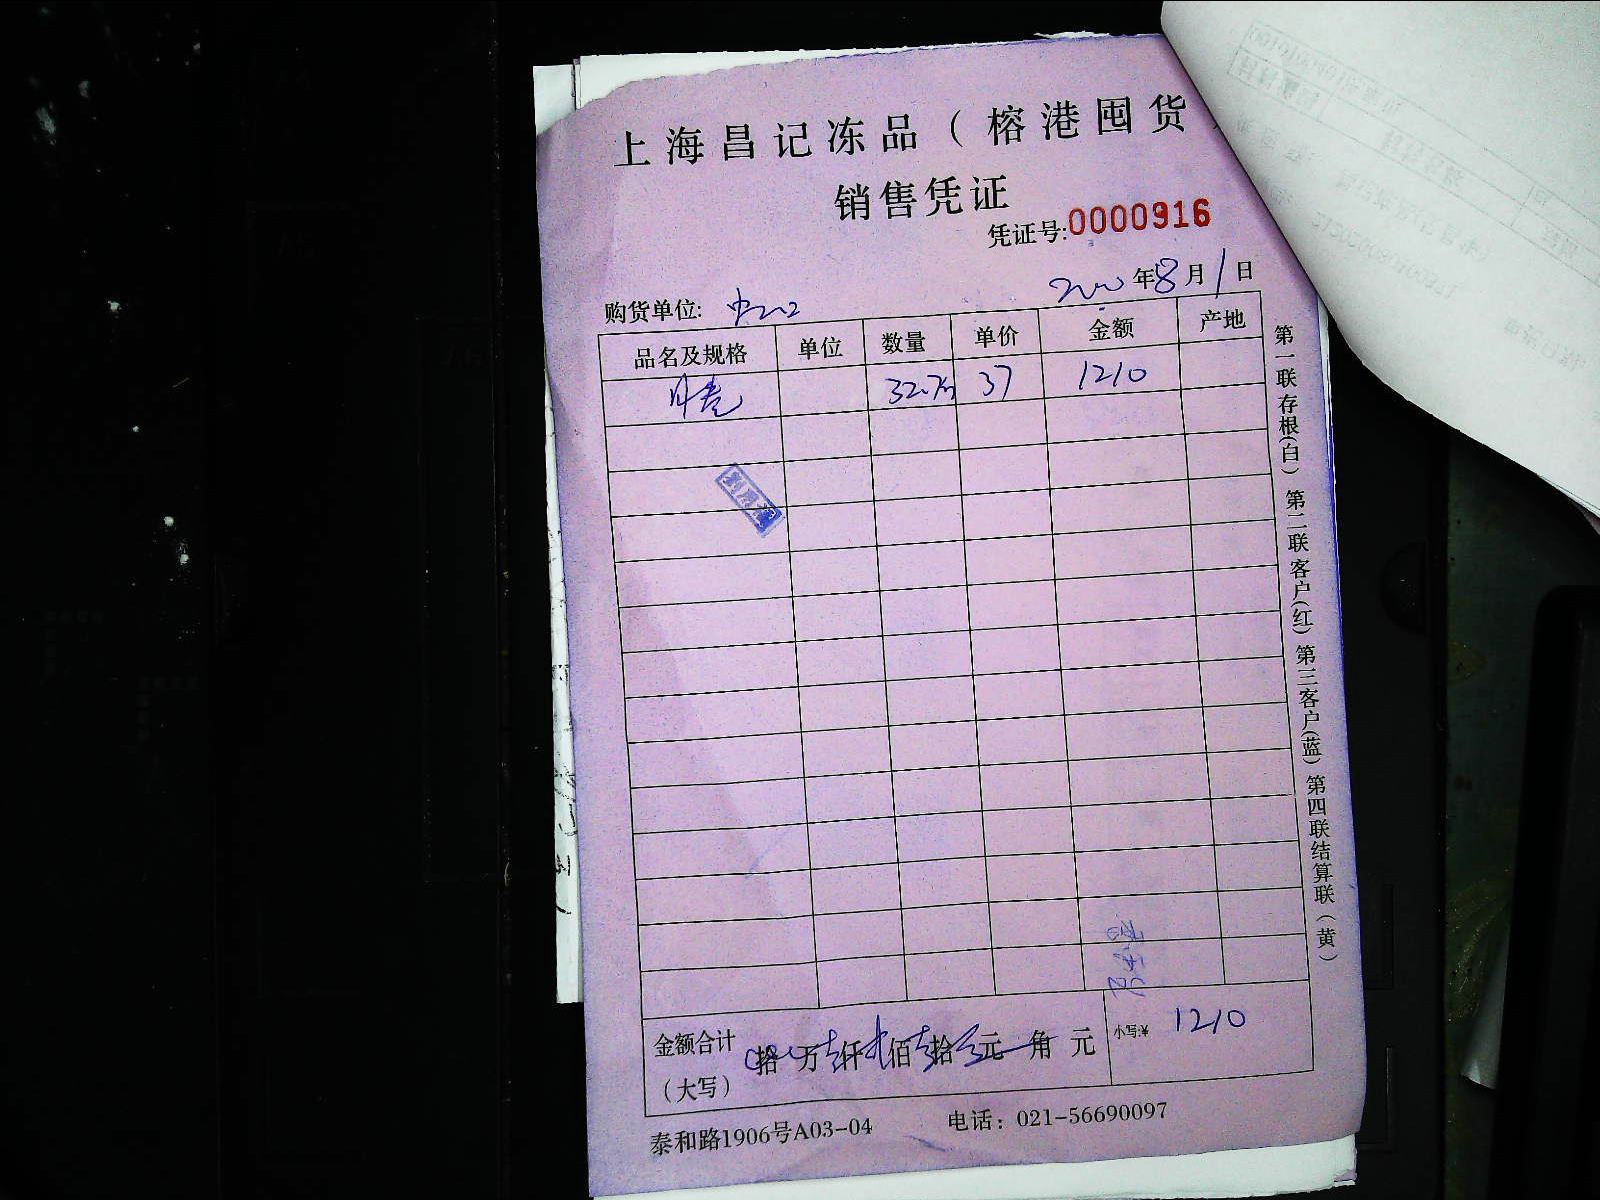 上海昌记冻品（榕港囤货
销售凭证
凭证号:0000916
年8月1日
购货单位:
品名及规格 单位 数量 单价 金额 产地
37 1210
金额合计 拾 万 仟 佰 拾 元 角 元 小写:¥ 1210
（大写）
泰和路1906号A03-04 电话：021-56690097
第一联存根(白) 第二联客户(红) 第三客户(蓝) 第四联结算联（黄）